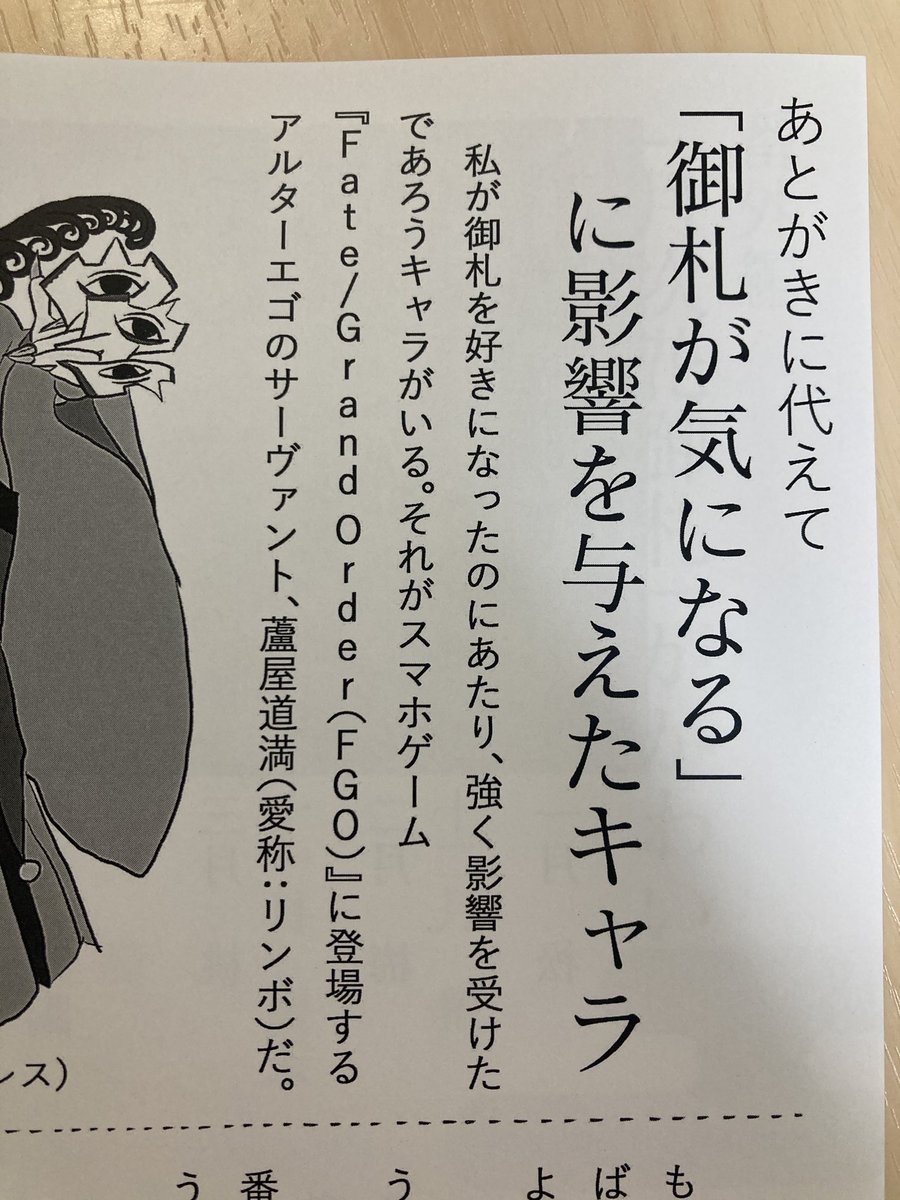 あとがきに代えて
「御札が気になる」
に影響を与えたキャラ
私が御札を好きになったのにあたり、強く影響を受けた
であろうキャラがいる。それがスマホゲーム
『Fate/Grand Order(FGO)』に登場する
アルターエゴのサーヴァント、蘆屋道満(愛称:リンボ)だ。
レス)
も
ば
よ
う
番
う